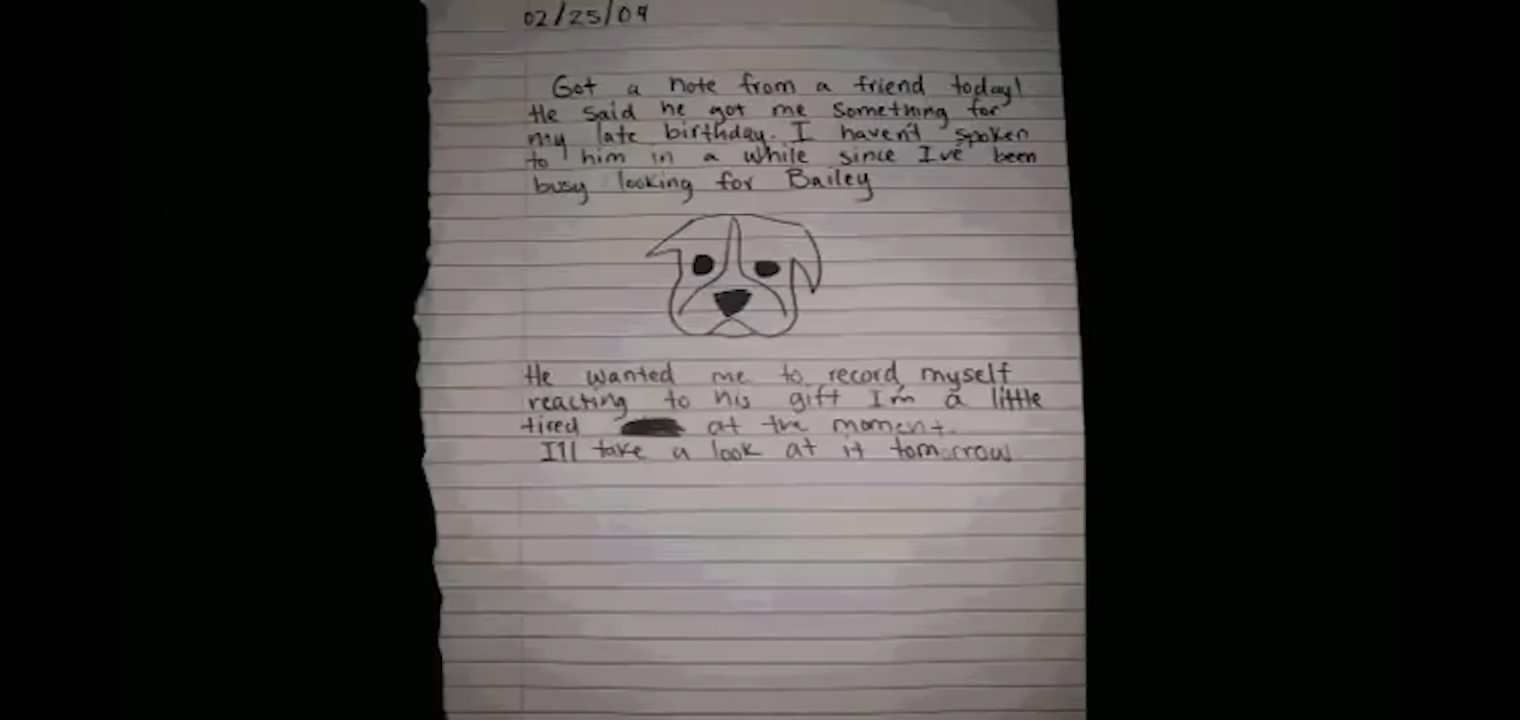 02/25/09
Got a note from a friend today!
He said he got me something for
my late birthday. I haven't spoken
to him in a while since I've been
busy looking for Bailey
He wanted me to record myself
reacting to his gift I'm a little
tired at the moment.
I'll take a look at it tomorrow